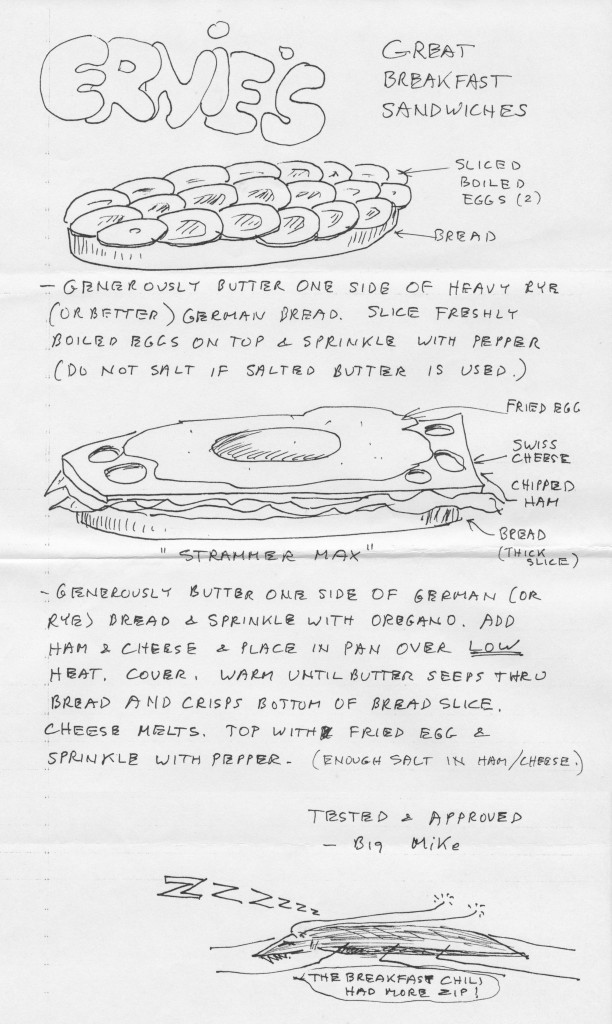 ERNIE'S
GREAT
BREAKFAST
SANDWICHES
SLICED
BOILED
EGGS (2)
BREAD
- GENEROUSLY BUTTER ONE SIDE OF HEAVY RYE
(OR BETTER) GERMAN BREAD. SLICE FRESHLY
BOILED EGGS ON TOP & SPRINKLE WITH PEPPER
(DO NOT SALT IF SALTED BUTTER IS USED.)
FRIED EGG
SWISS
CHEESE
CHIPPED
HAM
BREAD
(THICK
SLICE)
"STRAMMER MAX"
- GENEROUSLY BUTTER ONE SIDE OF GERMAN (OR
RYE) BREAD & SPRINKLE WITH OREGANO. ADD
HAM & CHEESE & PLACE IN PAN OVER LOW
HEAT. COVER. WARM UNTIL BUTTER SEEPS THRU
BREAD AND CRISPS BOTTOM OF BREAD SLICE.
CHEESE MELTS. TOP WITH FRIED EGG &
SPRINKLE WITH PEPPER. (ENOUGH SALT IN HAM/CHEESE.)
TESTED & APPROVED
- Big Mike
ZZZZZzz
THE BREAKFAST CHILI
HAD MORE ZIP!